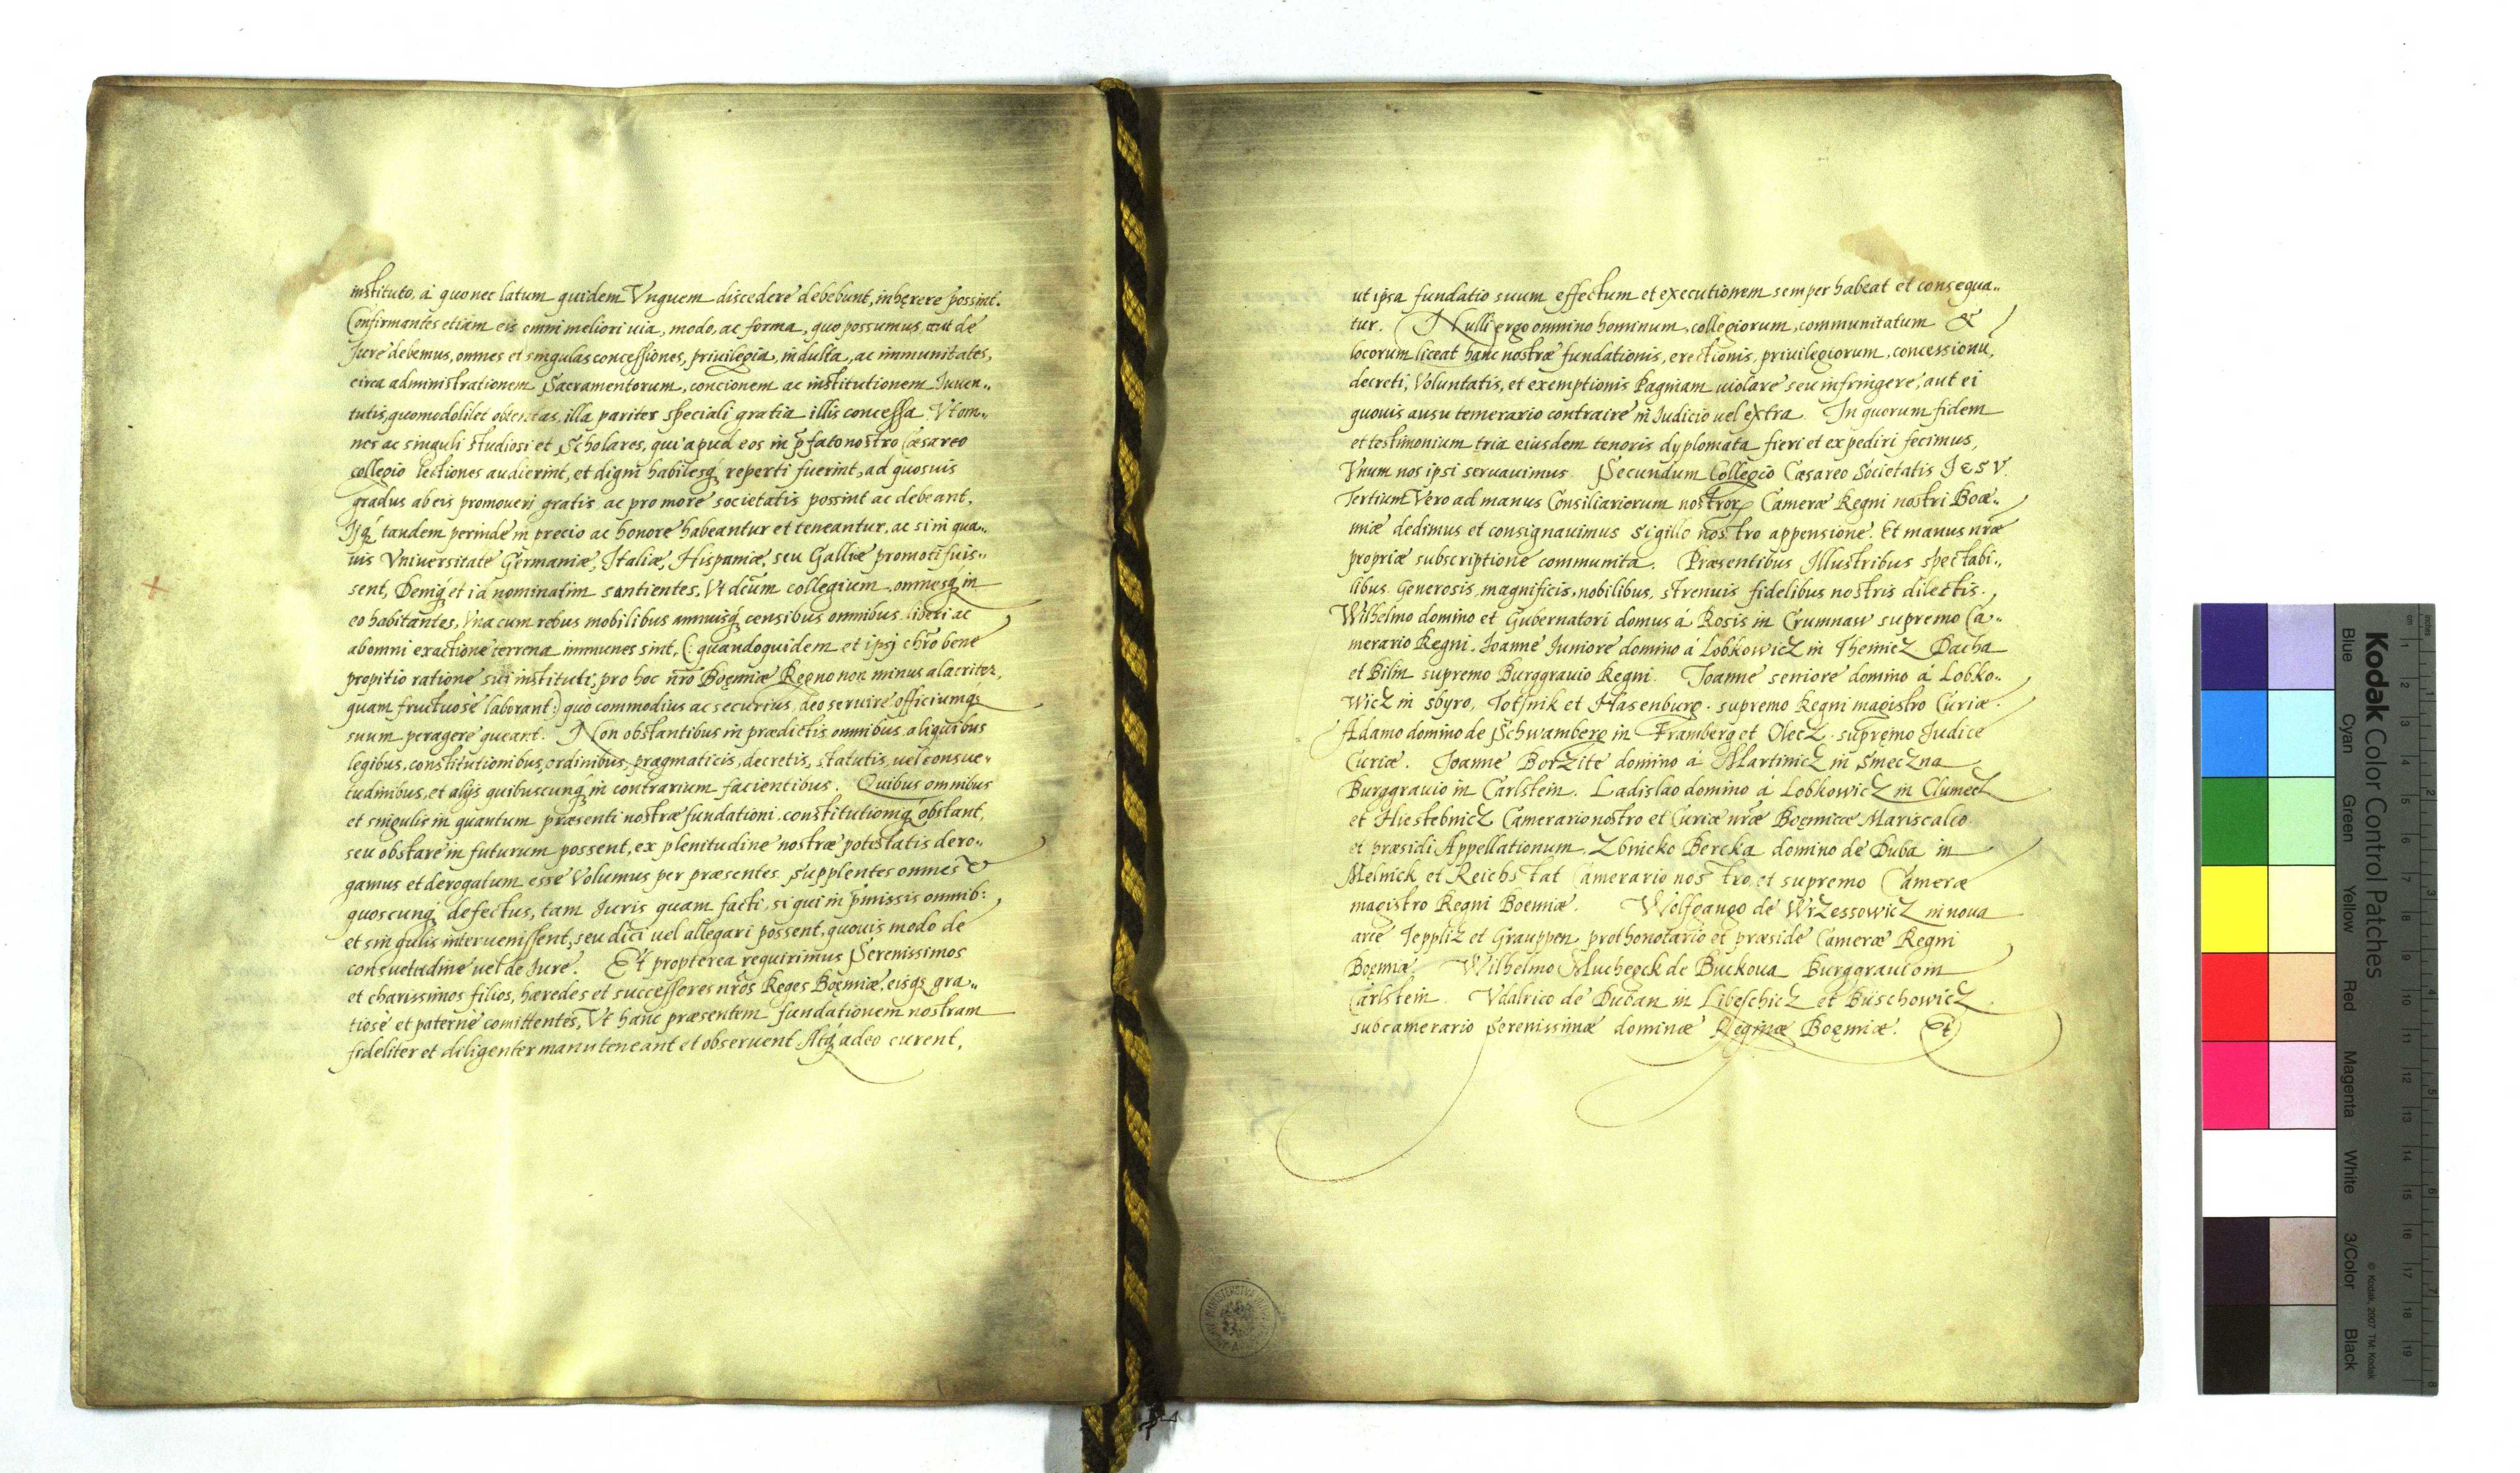 instituto, à quo nec latum quidem Vnguem discedere debebunt, inhęrere possint.
Confirmantes etiam eis omni meliori uia, modo, ac forma, quo possumus, aut de
Jure debemus, omnes et singulas concessiones, priuilegia, indulta, ac immunitates,
circa administrationem Sacramentorum, concionem ac institutionem Juuen„
tutis, quomodolibet obtentas, illa pariter speciali gratia illis concessa, Vt om„
nes ac singuli studiosi et Scholares, qui apud eos in p̄fato nostro Cæsareo
collegio lectiones audierint, et digni habilesq́ reperti fuerint, ad quosuis
gradus ab eis promoueri gratis ac pro more societatis possint ac debeant,
Jjq́ tandem perinde in precio ac honore habeantur et teneantur, ac si in qua„
uis Vniuersitate Germaniæ, Italiæ, Hispaniæ, seu Galliæ promoti fuis„
sent, Deniq́ et id nominatim santientes, Vt dc̄um collegium, omnesq́ in
eo habitantes, Vna cum rebus mobilibus annuisq́ censibus omnibus liberi ac
ab omni exactione terrena immunes sint, (: quandoquidem et ipsj chr̄o bene
propitio ratione sui instituti, pro hoc nr̄o Boęmiæ Regno non minus alacriter,
quam fructuosè laborant :) quo commodius ac securius, deo seruire officiumq́
suum peragere queant. Non obstantibus in prædictis omnibus aliquibus
legibus, constitutionibus, ordinibus, pragmaticis, decretis, statutis, uel consue„
tudinibus, et alijs quibuscunq́ in contrarium facientibus. Quibus omnibus
et singulis in quantum præsenti nostræ fundationi, constitutioniq́ obstant,
seu obstare in futurum possent, ex plenitudine nostræ potestatis dero„
gamus et derogatum esse Volumus per præsentes, supplentes omnes &
quoscunq́ defectus, tam Juris quam facti, si qui in p̄missis omnib:
et singulis interuenissent, seu dici uel allegari possent, quouis modo de
consuetudine uel de Jure. Et propterea requirimus Serenissimos
et charissimos filios, hæredes et successores nr̄os Reges Boęmiæ, eisq́ gra„
tiosè et paternè comittentes, Vt hanc præsentem fundationem nostram
fideliter et diligenter manuteneant et obseruent Atq́ adeo curent,
ut ipsa fundatio suum effectum et executionem semper habeat et consequa„
tur. Nulli ergo omnino hominum, collegiorum, communitatum &
locorum liceat hanc nostræ fundationis, erectionis, priuilegiorum, concessionū,
decreti, Voluntatis, et exemptionis Paginam uiolare seu infringere, aut ei
quouis ausu temerario contraire in Judicio uel extra. In quorum fidem
et testimonium tria eiusdem tenoris dyplomata fieri et expediri fecimus,
Vnum nos ipsi seruauimus. Secundum Collegio Cæsareo Societatis JESV
Tertium Vero ad manus Consiliariorum nostroꝝ Cameræ Regni nostri Boæ„
miæ dedimus et consignauimus sigillo nostro appensione. Et manus nr̄æ
propriæ subscriptione communita. Præsentibus Illustribus spectabi„
libus Generosis, magnificis, nobilibus, strenuis fidelibus nostris dilectis.
Wilhelmo domino et Gubernatori domus à Rosis in Crumnaw supremo Ca„
merario Regni. Joanne Juniore domino à Lobkowicz in Theinicz Dacha
et Bilin supremo Burggrauio Regni. Joanne seniore domino à Lobko„
Wicz in sbyro, Totsnik et Hasenburg. supremo Regni magistro Curiæ.
Adamo domino de Schwamberg in Framberg et Olecz. supręmo Judice
Curiæ. Joanne Borzite domino à Martinicz in smeczna
Burggrauio in Carlstein. Ladislao domino à Lobkowicz in Clumecz
et Hiestebnicz Camerario nostro et Curiæ nr̄æ Boęmicæ Mariscalco
et præsidi Appellationum. Zbincko Bercka domino de Duba in
Melnick et Reichstat Camerario nostro, et supremo Cameræ
magistro Regni Boemiæ. Wolfgango de Wrzessowicz in noua
arce Teppliz et Grauppen prothonotario et præside Cameræ Regni
Boęmiæ. Wilhelmo Mucheqck de Buckoua Burggrauio in
Carlstein. Vdalrico de Duban in Libeschicz et Büschowicz
subcamerario Serenissimæ dominæ Reginæ Boęmiæ. Et
Kodak Color Control Patches
© Kodak, 2007 TM: Kodak
Blue Cyan Green Yellow Red Magenta White 3/Color Black